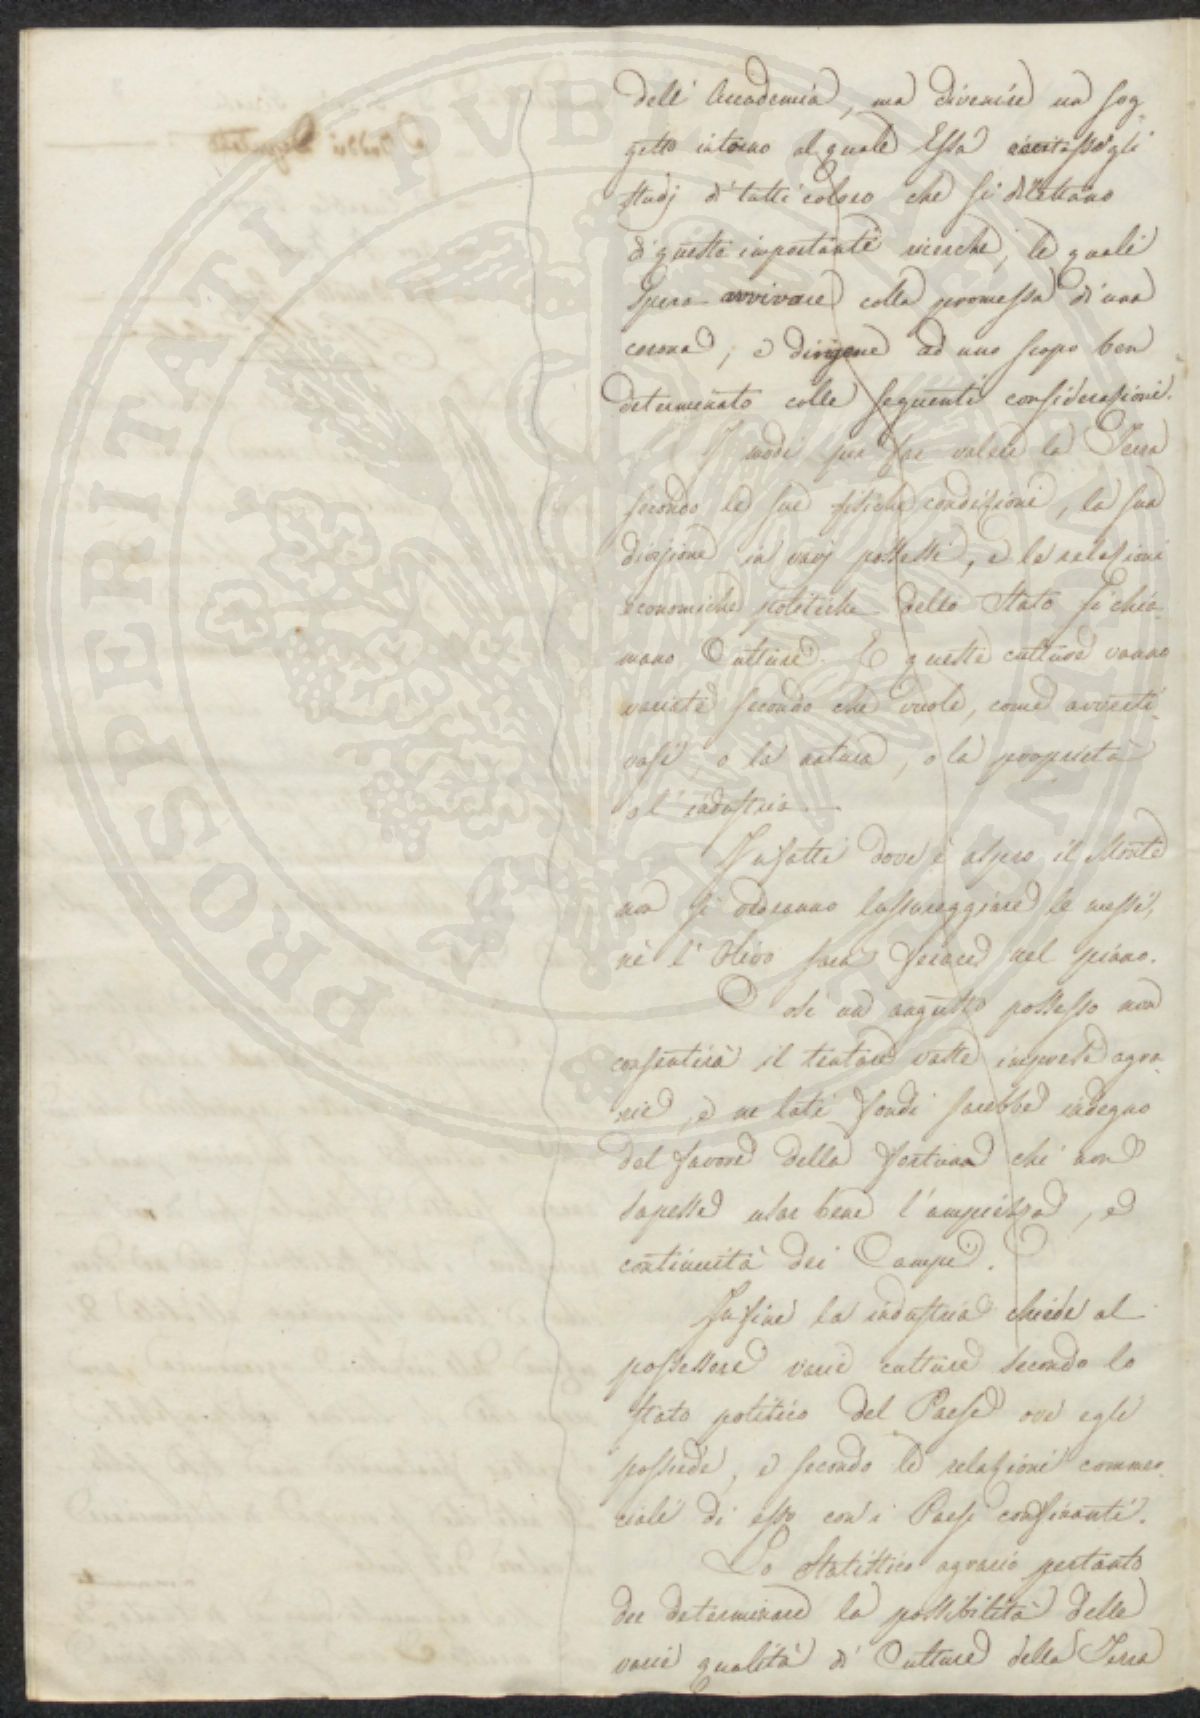 dell' Accademia, ma divenire un sog-
getto intorno al quale Essa eccitasse gli
studj di tutti coloro che si dilettano
di queste importanti ricerche, le quali
spera avvivare colla promessa di una
corona, e dirigere ad uno scopo ben
determinato colle seguenti considerazioni.
I modi per far valere la Terra
secondo le sue fisiche condizioni, la sua
divisione in varj possessi, e le relazioni
economiche politiche dello Stato si chia-
mano Culture. E queste culture vanno
variate secondo che vuole, come avverti-
vasi, o la natura, o la proprietà
o l'industria.
Infatti dove è aspro il Monte
non si vedranno lussureggiare le messi,
nè l'Olivo sarà ferace nel piano.
Così un angusto possesso non
consentirà il tentare vaste imprese agra-
rie, e ne lati fondi sarebbe indegno
del favore della fortuna chi non
sapesse usar bene l'ampiezza, e
continuità dei Campi.
Infine la industria chiede al
possessore varie culture secondo lo
stato politico del Paese ove egli
possiede, e secondo le relazioni commer-
ciali di esso con i Paesi confinanti.
Lo Statistico agrario pertanto
dee determinare la possibilità delle
varie qualità di Culture della Terra
PROSPERITATI PUBLICAE AUGENDAE